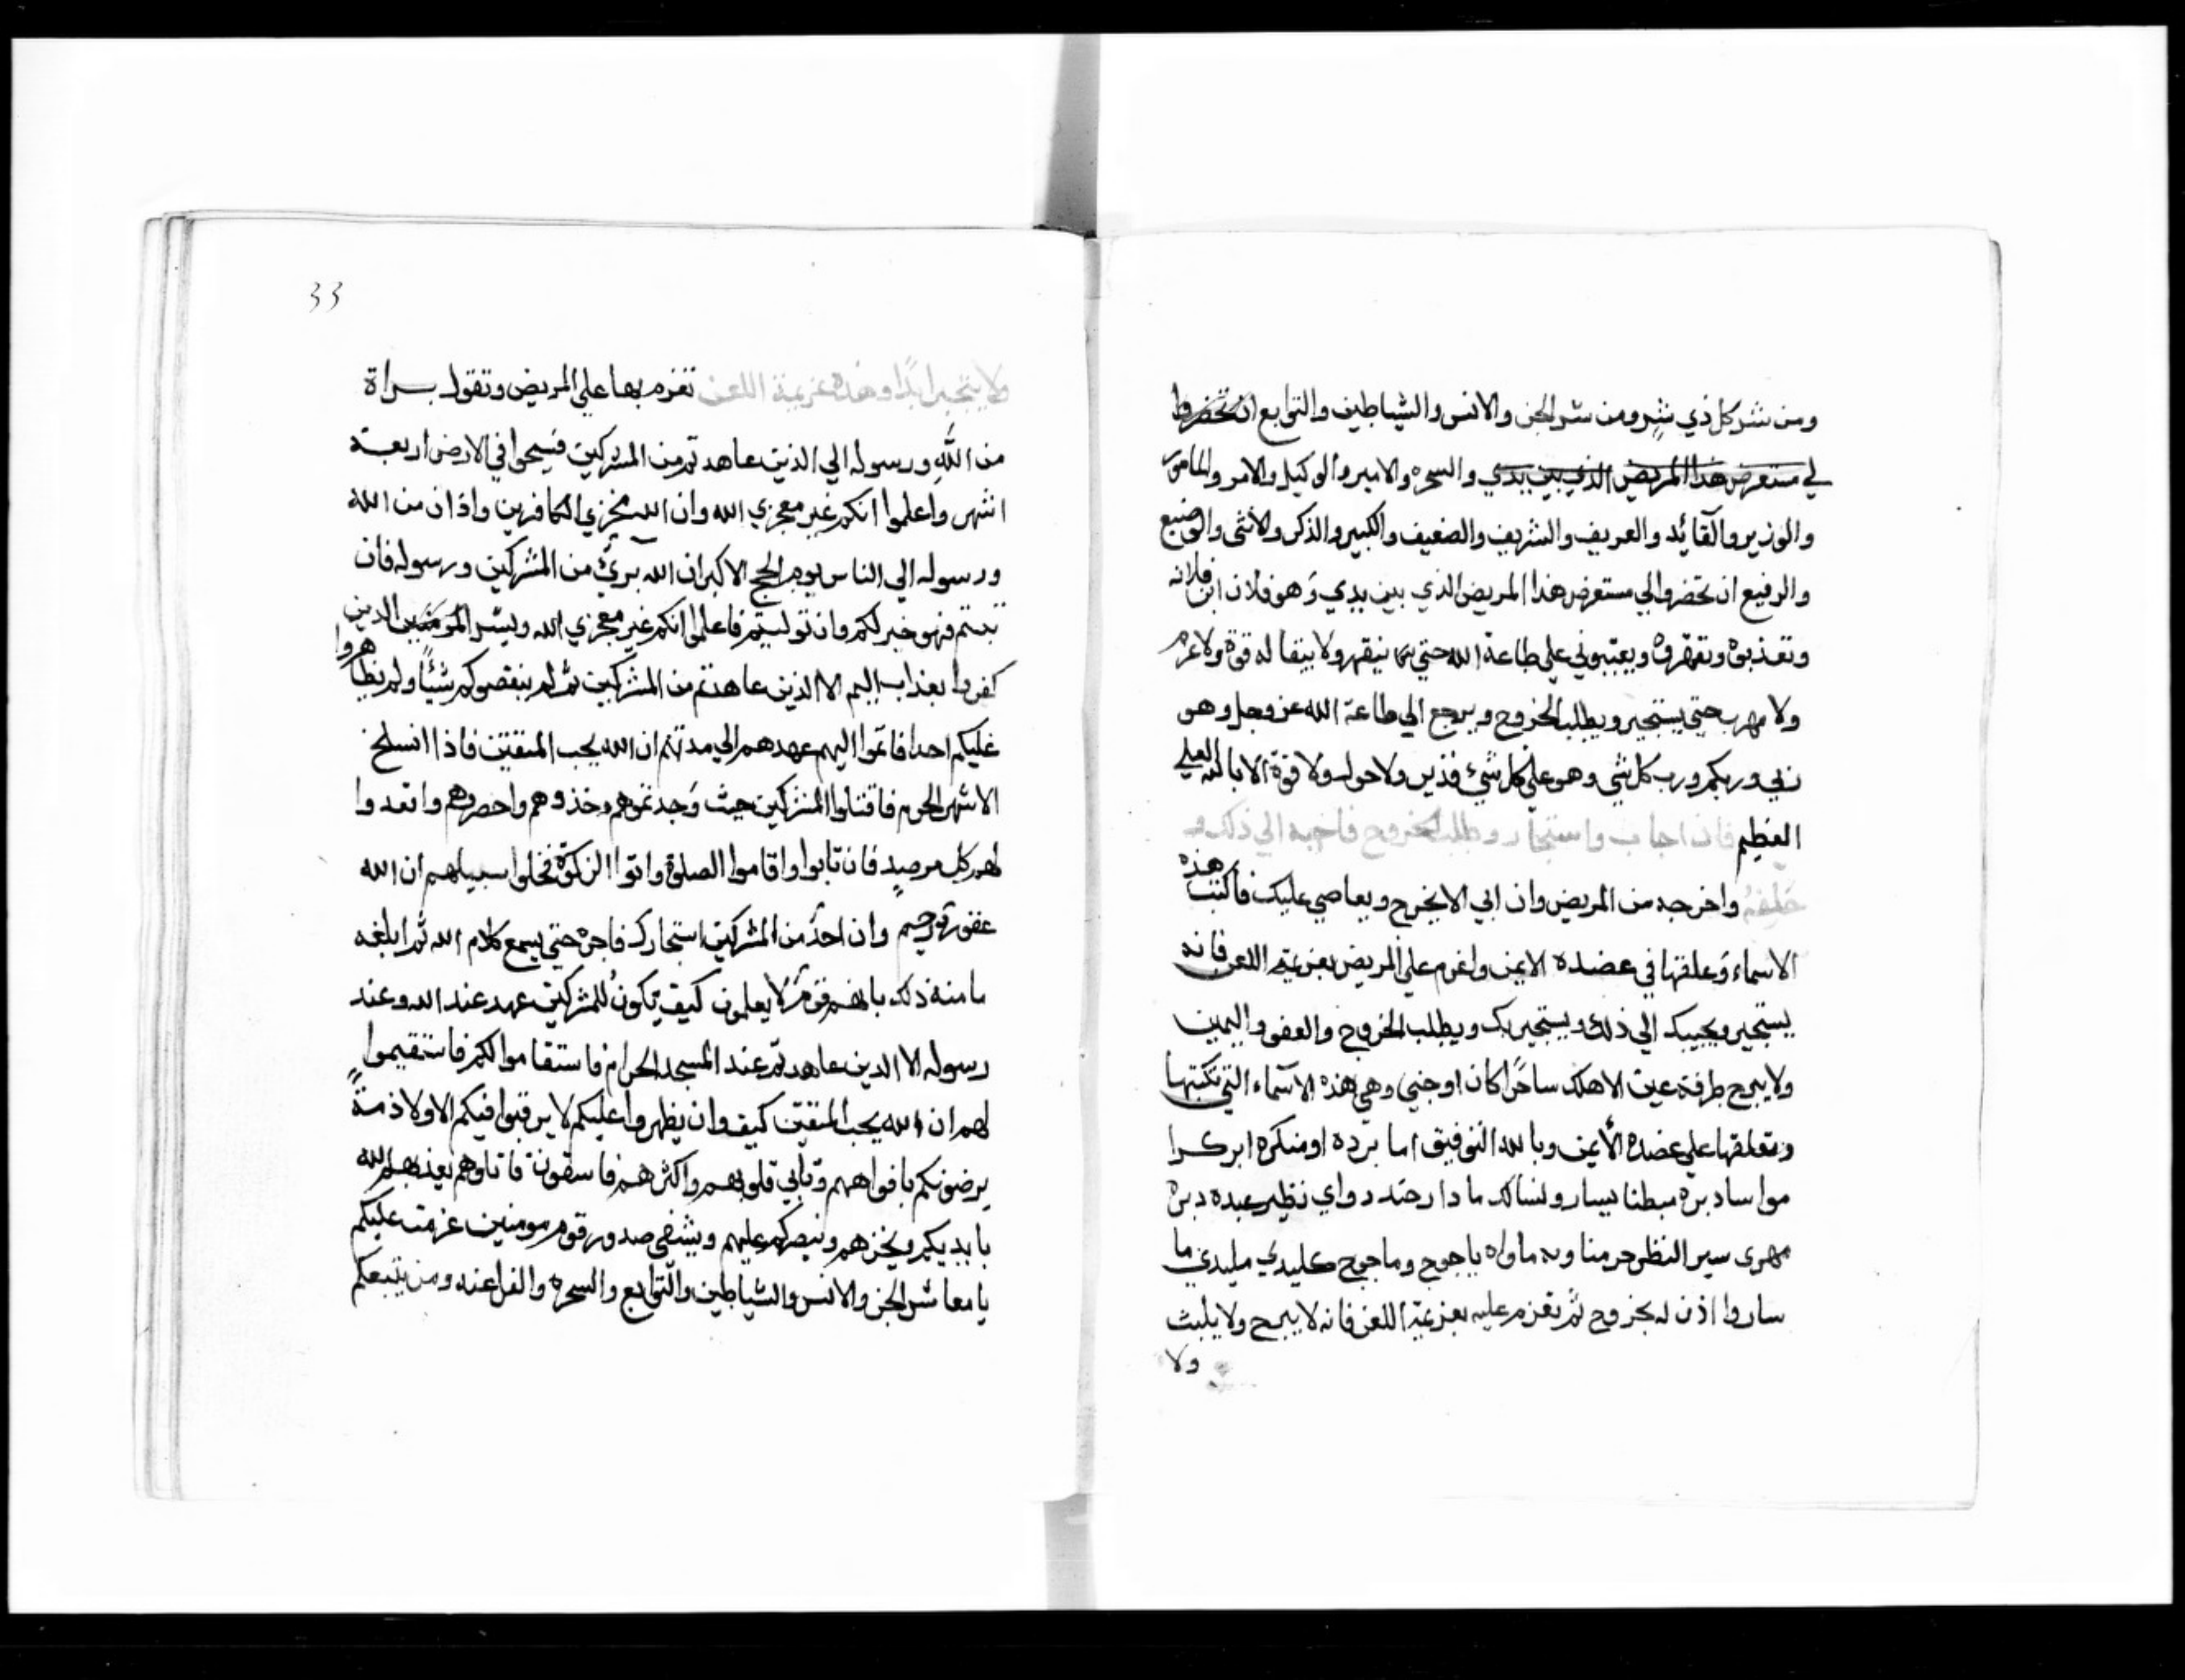 ومن شر كل ذي شر ومن شر الجن والانس والشياطين والتوابع ان تحضروا
لي مستعرض هذا المريض الذي بين يدي والسحره والامير والوكيل والامر والمامور
والوزير والقايد والعريف والشريف والضعيف والكبير والذكر والانثى والوضيع
والرفيع ان تحضروا لي مستعرض هذا المريض الذي بين يدي وهو فلان ابن فلانه
وتعذبوه وتقهروه على طاعة الله حتى ولا يبقا له قوة ولا عزم
ولا مهرب حتى يستجير ويطلب الخروج ويرجع الي طاعة الله عز وجل وهو
ربي وربكم ورب كل شي وهو على كل شئ قدير ولا حول ولا قوة الا بالله العلي
العظيم فان اجاب واستجار وطلب الخروج فاجبه الي ذلك و
حلفه واخرجه من المريض وان ابي الا يخرج ويعاصي عليك فاكتب هذه
الاسماء وعلقها في عضده الايمن واعزم علي المريض بعزيمة اللعن فانه
يستجير ويجيبك الي ذلك ويستجير بك ويطلب الخروج والعفو واليمين
ولا يبرح طرفة عين الا هلك ساحرًا كان او جني وهي هذه الاسماء التي تكتبها
وتعلقها علي عضده الأيمن وبالله التوفيق اما برده او منكره ابركرا
موا سا دبره مبطنا بيسار ولنسالك ما دا رحتد دواي نظير عبده دبره
مهرى سير النظر حرمنا وبه ماواه ياجوج وماجوج كليدي مليدي ما
ساروا اذن له بخروج ثم تعزم عليه بعزيمة اللعن فانه لا يبرح ولا يلبث
ولا
33
ولا يتجبر ابدًا وهذه عزيمة اللعن تعزم بها علي المريض وتقول براة
من اللّه ورسوله الي الذين عاهدتم من المشركين فسيحوا في الارض اربعة
اشهر واعلموا انكم غير معجزي الله وان الله مخزي الكافرين واذان من الله
ورسوله الي الناس يوم الحج الاكبر ان الله برئ من المشركين ورسوله فان
تبتم فهو خير لكم وان توليتم فاعلموا انكم غير معجزي الله وبشر الذين
كفروا بعذاب اليم الا الذين عاهدتم من المشركين ثم لم ينقصوكم شيئًا ولم يظاهروا
عليكم احدا فاتموا اليهم عهدهم الي مدتهم ان الله يحب المتقين فاذا انسلخ
الاشهر الحرم فاقتلوا المشركين حيث وجدتموهم وخذوهم واحصروهم واقعدوا
لهم كل مرصدٍ فان تابوا واقاموا الصلوة واتوا الزكوة فخلوا سبيلهم ان الله
غفور رحيم وان احدٌ من المشركين استجارك فاجره حتي يسمع كلام الله ثم ابلغه
مامنه ذلك بانهم قومٌ لا يعلمون كيف يكون للمشركين عهد عند الله وعند
رسوله الا الدين عاهدتم عند المسجد الحرام فاستقاموا لكم فاستقيموا
لهم ان الله يحب المتقين كيف وان يظهروا عليكم لا يرقبوا فيكم الا ولا ذمةً
يرضونكم بافواههم وتابي قلوبهم واكثرهم فاسقون قاتلوهم يعذبهم الله
بايديكم ويخزهم وينصركم عليهم ويشفي صدور قوم مومنين عزمت عليكم
يا معاشر الجن والانس والشياطين والتوابع والسحره والفراعنه ومن يتبعكم